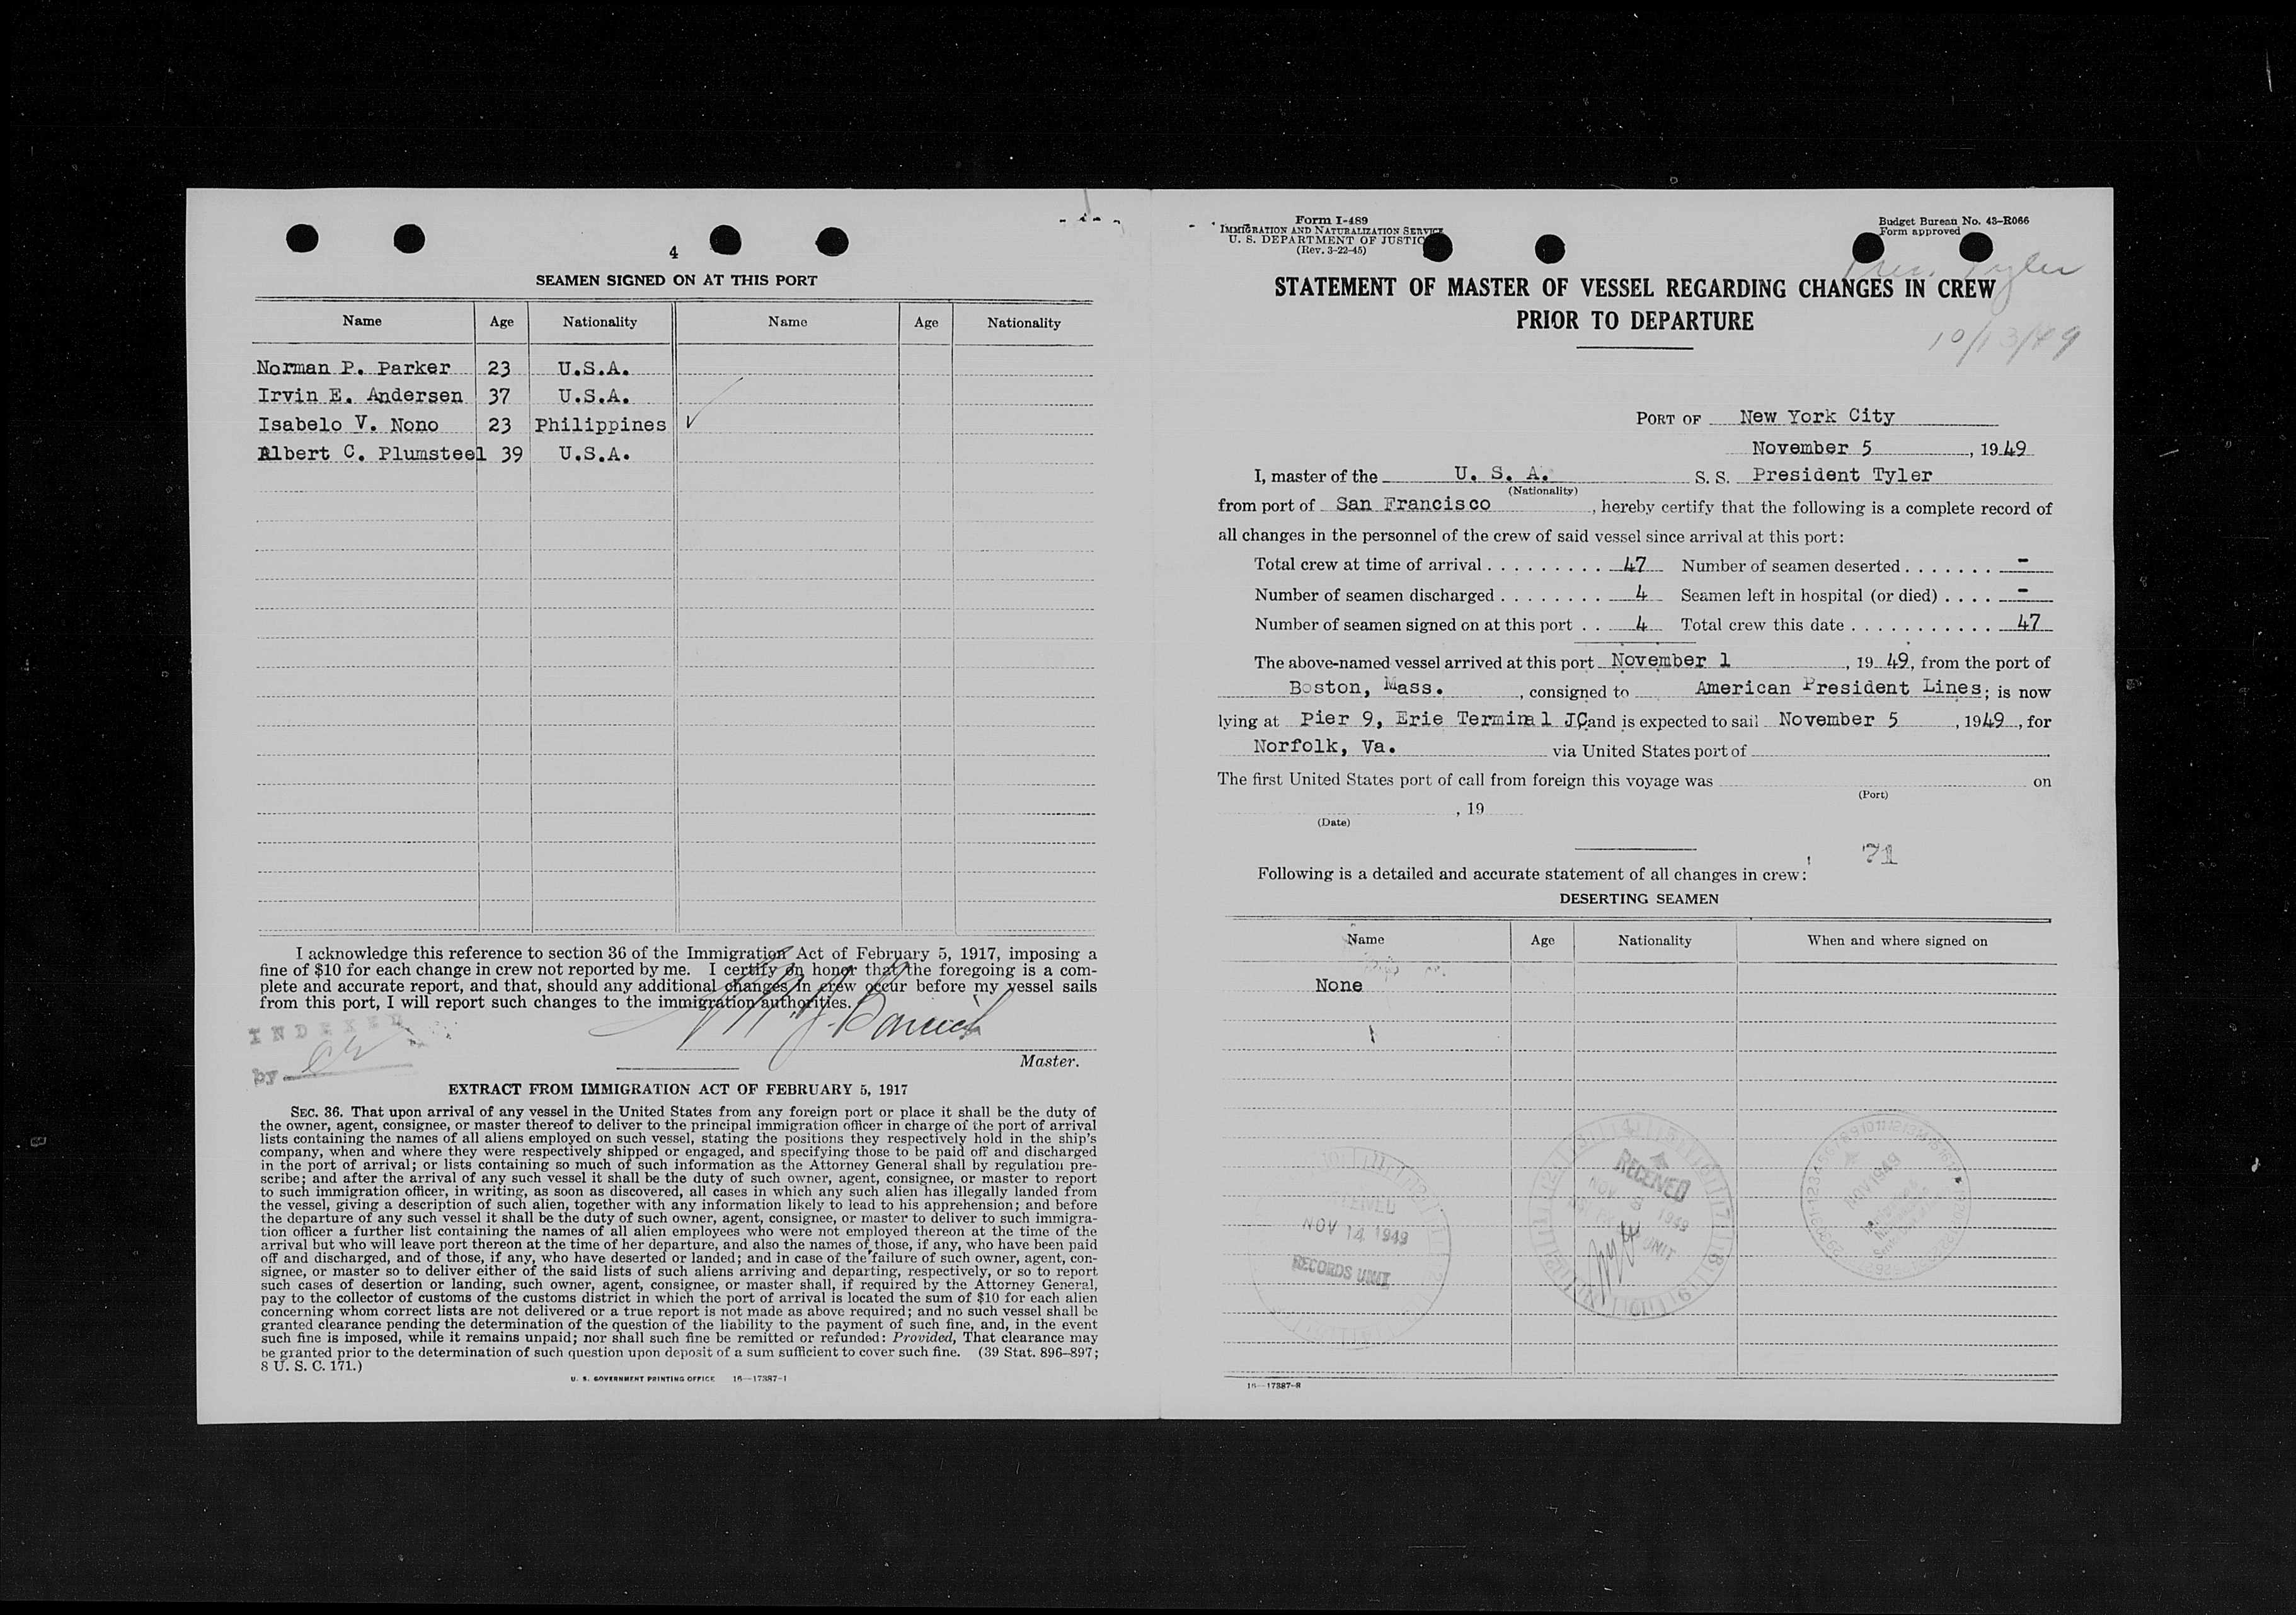 4
SEAMEN SIGNED ON AT THIS PORT
Name Age Nationality Name Age Nationality
Norman P. Parker 23 U.S.A.
Irvin E. Andersen 37 U.S.A.
Isabelo V. Nono 23 Philippines ✓
Albert C. Plumsteel 39 U.S.A.
I acknowledge this reference to section 36 of the Immigration Act of February 5, 1917, imposing a
fine of $10 for each change in crew not reported by me. I certify on honor that the foregoing is a com-
plete and accurate report, and that, should any additional changes in crew occur before my vessel sails
from this port, I will report such changes to the immigration authorities.
INDEXED
by
Master.
EXTRACT FROM IMMIGRATION ACT OF FEBRUARY 5, 1917
SEC. 36. That upon arrival of any vessel in the United States from any foreign port or place it shall be the duty of
the owner, agent, consignee, or master thereof to deliver to the principal immigration officer in charge of the port of arrival
lists containing the names of all aliens employed on such vessel, stating the positions they respectively hold in the ship's
company, when and where they were respectively shipped or engaged, and specifying those to be paid off and discharged
in the port of arrival; or lists containing so much of such information as the Attorney General shall by regulation pre-
scribe; and after the arrival of any such vessel it shall be the duty of such owner, agent, consignee, or master to report
to such immigration officer, in writing, as soon as discovered, all cases in which any such alien has illegally landed from
the vessel, giving a description of such alien, together with any information likely to lead to his apprehension; and before
the departure of any such vessel it shall be the duty of such owner, agent, consignee, or master to deliver to such immigra-
tion officer a further list containing the names of all alien employees who were not employed thereon at the time of the
arrival but who will leave port thereon at the time of her departure, and also the names of those, if any, who have been paid
off and discharged, and of those, if any, who have deserted or landed; and in case of the failure of such owner, agent, con-
signee, or master so to deliver either of the said lists of such aliens arriving and departing, respectively, or so to report
such cases of desertion or landing, such owner, agent, consignee, or master shall, if required by the Attorney General,
pay to the collector of customs of the customs district in which the port of arrival is located the sum of $10 for each alien
concerning whom correct lists are not delivered or a true report is not made as above required; and no such vessel shall be
granted clearance pending the determination of the question of the liability to the payment of such fine, and, in the event
such fine is imposed, while it remains unpaid; nor shall such fine be remitted or refunded: Provided, That clearance may
be granted prior to the determination of such question upon deposit of a sum sufficient to cover such fine. (39 Stat. 896–897;
8 U. S. C. 171.)
U. S. GOVERNMENT PRINTING OFFICE 16—17387-1
Form I-489
IMMIGRATION AND NATURALIZATION SERVICE
U. S. DEPARTMENT OF JUSTIC
(Rev. 3-22-45)
Budget Bureau No. 43–R066
Form approved
Pres. Tyler
10/13/49
STATEMENT OF MASTER OF VESSEL REGARDING CHANGES IN CREW
PRIOR TO DEPARTURE
PORT OF New York City
November 5, 1949
I, master of the U. S. A. S. S. President Tyler
(Nationality)
from port of San Francisco, hereby certify that the following is a complete record of
all changes in the personnel of the crew of said vessel since arrival at this port:
Total crew at time of arrival 47 Number of seamen deserted -
Number of seamen discharged 4 Seamen left in hospital (or died) -
Number of seamen signed on at this port 4 Total crew this date 47
The above-named vessel arrived at this port November 1, 1949, from the port of
Boston, Mass., consigned to American President Lines; is now
lying at Pier 9, Erie Terminal JC and is expected to sail November 5, 1949, for
Norfolk, Va. via United States port of
The first United States port of call from foreign this voyage was on
(Port)
, 19
(Date)
71
Following is a detailed and accurate statement of all changes in crew:
DESERTING SEAMEN
Name Age Nationality When and where signed on
None
NOV 14 1949
RECORDS UNIT
RECEIVED
NOV 1949
UNIT
NOV 1949
16—17387-2